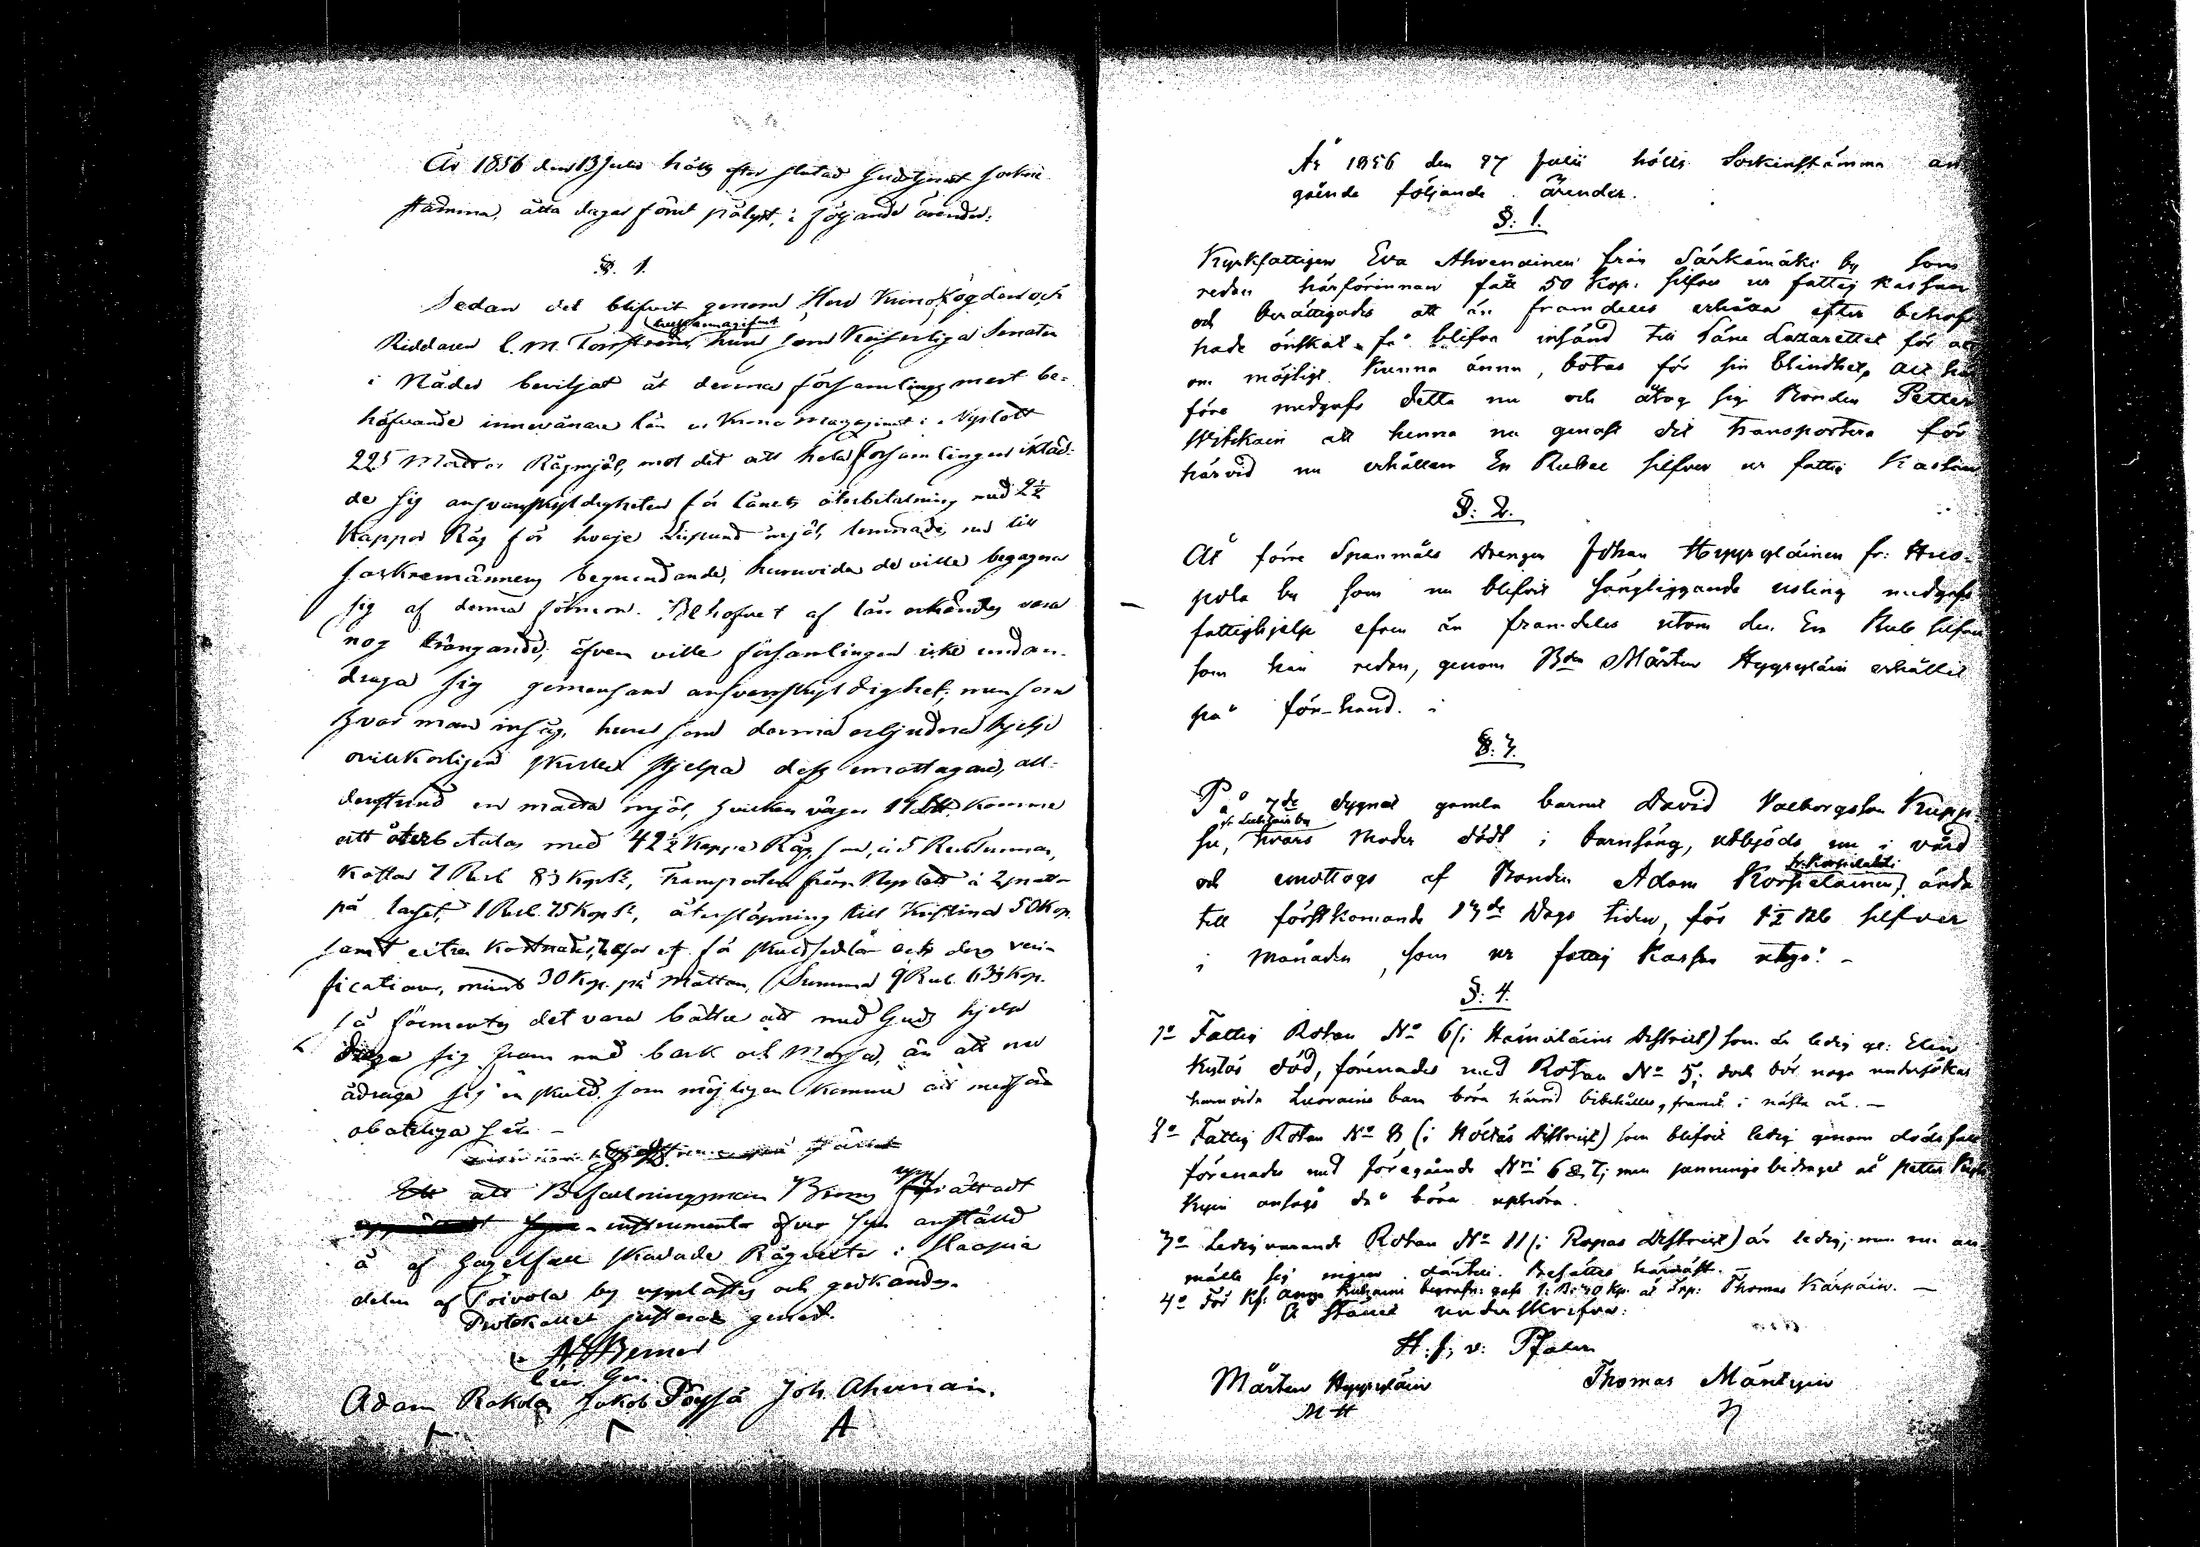 År 1856 den 13 Julii hölts efter slutad Gudstjenst socken
stämma, åtta dagar förut pålyst, i följande ärender:
§. 1.
Sedan det blifvit genom Herr Kronofogden och
Riddaren C. M. Torrström huru som Keiserliga Senaten
i Nåder beviljat åt denna församlings mest be-
höfvande innevånare lån ur Krono magazinet i Nyslott
225 Mattor Rågmjöl, mot det att hela Församlingen ikläd-
de sig ansvarsskyldigheten för lånets återbetalning med 2½
Kappar Råg för hvarje Lispund mjöl, lemnades nu till
sockenemännens begrundande, huruvida de ville begagna
sig af denna förmon. Behofvet af lån erkändes vara
nog trängande; äfven ville församlingen icke undan-
draga sig gemensam ansvarsskyldighet; men som
hvar man insåg, huru som denna erbjudna hjelp
ovillkorligen skulle stjelpa dess emottagare, all-
denstund en matta mjöl, hvilken väger 17 komme
att återbetalas med 42½ Kappar Råg, som, à 5 Rub Tunnan,
kostar 7 Rub 83 Kop Sr, Transporten från Nyslott à 2 mattor
på lasset, 1 Rub. 75 Kop Sr, återsläpning till Kristina 50 Kop.
samt extra kostnader, för skuldsedlar och ders veri-
ficationer, minst 30 Kop. på Mattan, Summa 9 Rub. 63 Kop.
så förmentes det vara bättre att med Guds hjelp
draga sig fram med bark och Mossa, än att nu
ådraga sig en skuld som möjligen komme att medföra
obotliga sår. –
att Befallningsman upprättadt
instrument öfver syn anställd
å af hagelfall skadade Rågväxter i
delen af Toivola by upplästes och godkändes.
Protokollet justeradt genast.
Adam Rokola Jakob Pöysä Joh. Ahvenain.
A
År 1856 den 27 Julii hölls Sockenstämma an
gående följande ärender.
§: 1.
Kyrkfattigen Eva Ahvenainen från Särkämäki by som
redan härförinnan fått 50 Kop. silfver ur fattig kassan
och berättigades att än framdeles erhålla efter behof
hade önskat få blifva insänd till Läns Lazarettet för att
om möjligt kunna ännu botas för sin blindhet,
före medgafs detta nu och åtog sig Bonden Petter
att henne nu genast dit transportera för
härvid nu erhållen En Rubel silfver ur fattig Kassan
§: 2.
Åt förre Spanmåls Drengen Johan Hyyryläinen fr: Huo-
pola by som nu blifvit sängliggande usling medgafs
fattighjelp efven än framdeles utom den En Rub silfver
som han redan, genom Bden Mårten Hyyryläin erhållit
på för-hand.
§: 3.
På 7de dygnet gamla barnet David Valborgsson Kupp-
hvars Moder dödt i barnsäng, utbjöds nu i vård
och emottogs af Bonden Adam Korpelainen, ända
till förstkomande 13de Dags tiden, för 1½ Rb silfver
i månaden, som ur fattig Kassan utgår. –
§: 4.
1o Fattig Rotan No 6 (i Hämäläins District) som är ledig ge: Elin
död, förenades med Rotan No 5; dock bör noga undersökas
huruvida barn böra härvid bibehållas, framåt i nästa år. –
2o Fattig Rotan No 8 (i Höltäs District) som blifvit ledig genom dödsfall
förenades med föregående Nri 6 & 7; men pennings bidraget åt Petter
ansågs då böra upphöra.
3o Ledigvarande Rotan No 11 (i Ropas District) är ledig; men nu an-
mälte sig ingen dertill. Besättes härnäst. –
4o För Kf: Anna begrafn: gafs 1: R: 40 Kp. åt Inh: Thomas Kärpäin. –
A Stället underskrifva:
H. J. v: Pfaler
Mårten Hyyryläin Thomas Mäntynen
M-H